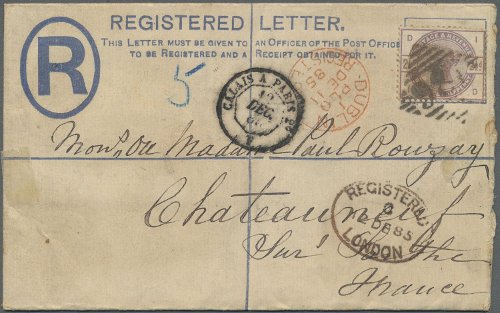 REGISTERED LETTER.
THIS LETTER MUST BE GIVEN TO AN OFFICER OF THE POST OFFICE
TO BE REGISTERED AND A RECEIPT OBTAINED FOR IT.
R
5
CALAIS A PARIS
DEC
DUBL
D I
I D
Mons ou Madame Paul Rouzay
Chateauneuf
Sur Sarthe
France
REGISTERED
2 DE 85
LONDON